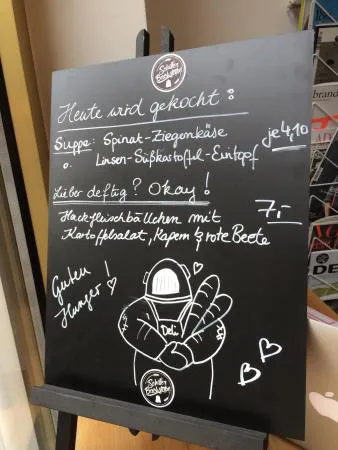 Schiller Backstube
Heute wird gekocht:
Suppe: Spinat-Ziegenkäse
o. Linsen-Süßkartoffel-Eintopf
je 4,10
Lieber deftig? Okay!
Hackfleischbällchen mit
Kartoffelsalat, Kapern & rote Beete
7,-
Guten
Hunger!
Deli
Schiller Backstube